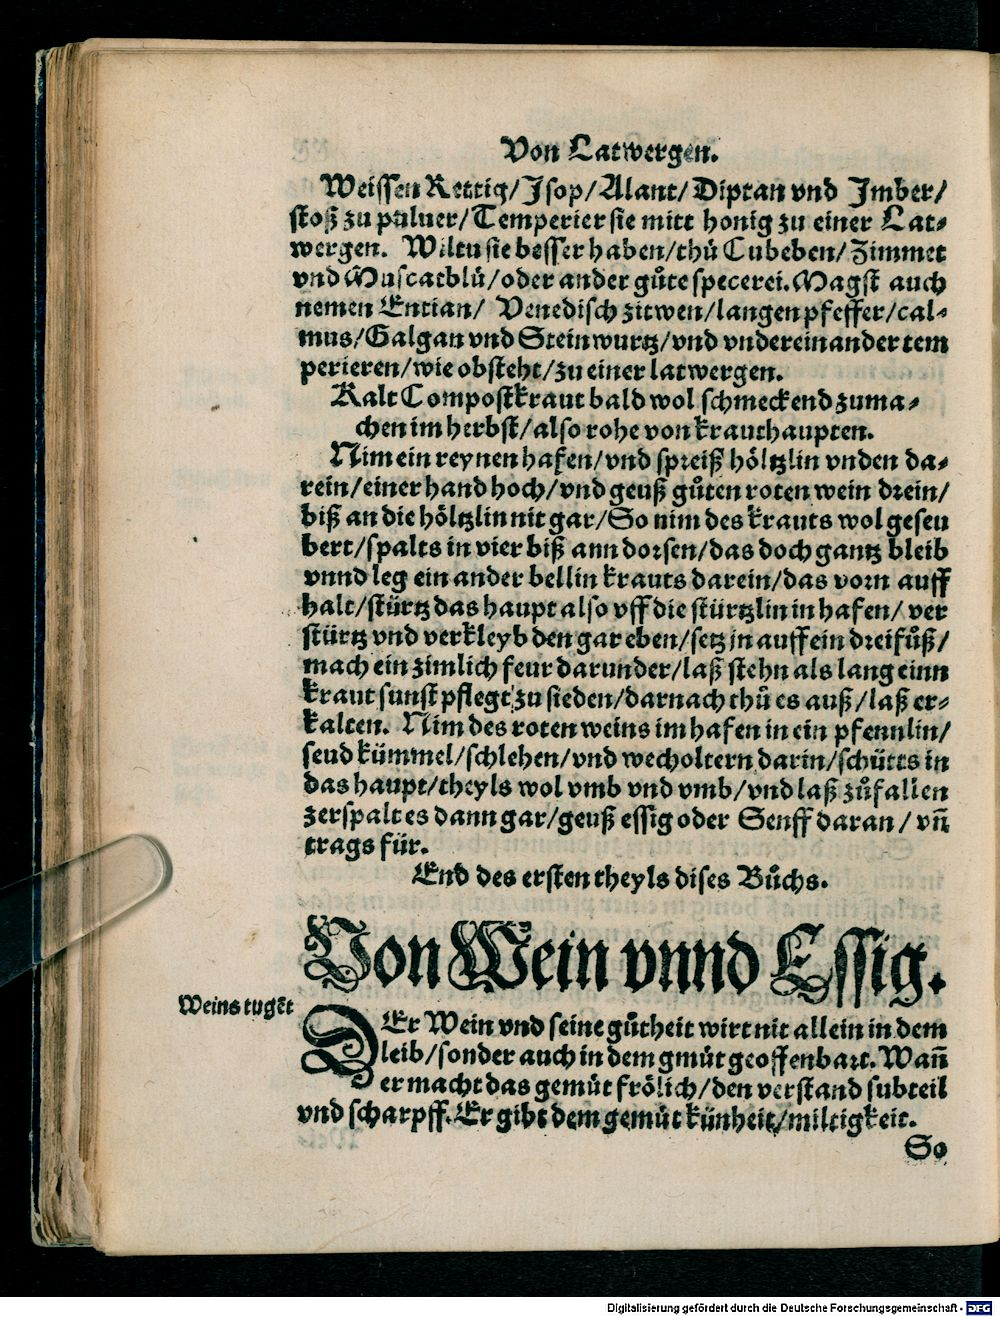 Von Latwergen.
Weissen Rettig/Jsop/Alant/Diptan vnd Jmber/
stoß zu puluer/Temperier sie mitt honig zu einer Lat-
wergen. Wiltu sie besser haben/thů Cubeben/Zimmet
vnd Muscatblů/oder ander gůte specerei. Magst auch
nemen Entian/ Venedisch zitwen/langen pfeffer/cal-
mus/Galgan vnd Steinwurtz/vnd vndereinander tem
perieren/wie obsteht/zu einer latwergen.
Kalt Compostkraut bald wol schmeckend zuma-
chen im herbst/also rohe von krauthaupten.
Nim ein reynen hafen/vnd spreiß höltzlin vnden da-
rein/einer hand hoch/vnd geuß gůten roten wein drein/
biß an die höltzlin nit gar/So nim des krauts wol geseu
bert/spalts in vier biß ann dorsen/das doch gantz bleib
vnnd leg ein ander bellin krauts darein/das vorn auff
halt/stürtz das haupt also vff die stürtzlin in hafen/ ver
stürtz vnd verkleyb den gar eben/setz in auff ein dreifůß/
mach ein zimlich feur darunder/laß stehn als lang einn
kraut sunst pflegt zu sieden/darnach thů es auß/laß er-
kalten. Nim des roten weins im hafen in ein pfennlin/
seud kümmel/schlehen/vnd wecholtern darin/schütts in
das haupt/theyls wol vmb vnd vmb/vnd laß zůfallen
zerspalt es dann gar/geuß essig oder Senff daran/ vñ
trags für.
End des ersten theyls dises Bůchs.
Von Wein vnnd Essig.
Weins tugẽt
DEr Wein vnd seine gůtheit wirt nit allein in dem
leib/sonder auch in dem gmüt geoffenbart. Wañ
er macht das gemüt frölich/den verstand subteil
vnd scharpff. Er gibt dem gemüt künheit/miltigkeit.
So
Digitalisierung gefördert durch die Deutsche Forschungsgemeinschaft - DFG